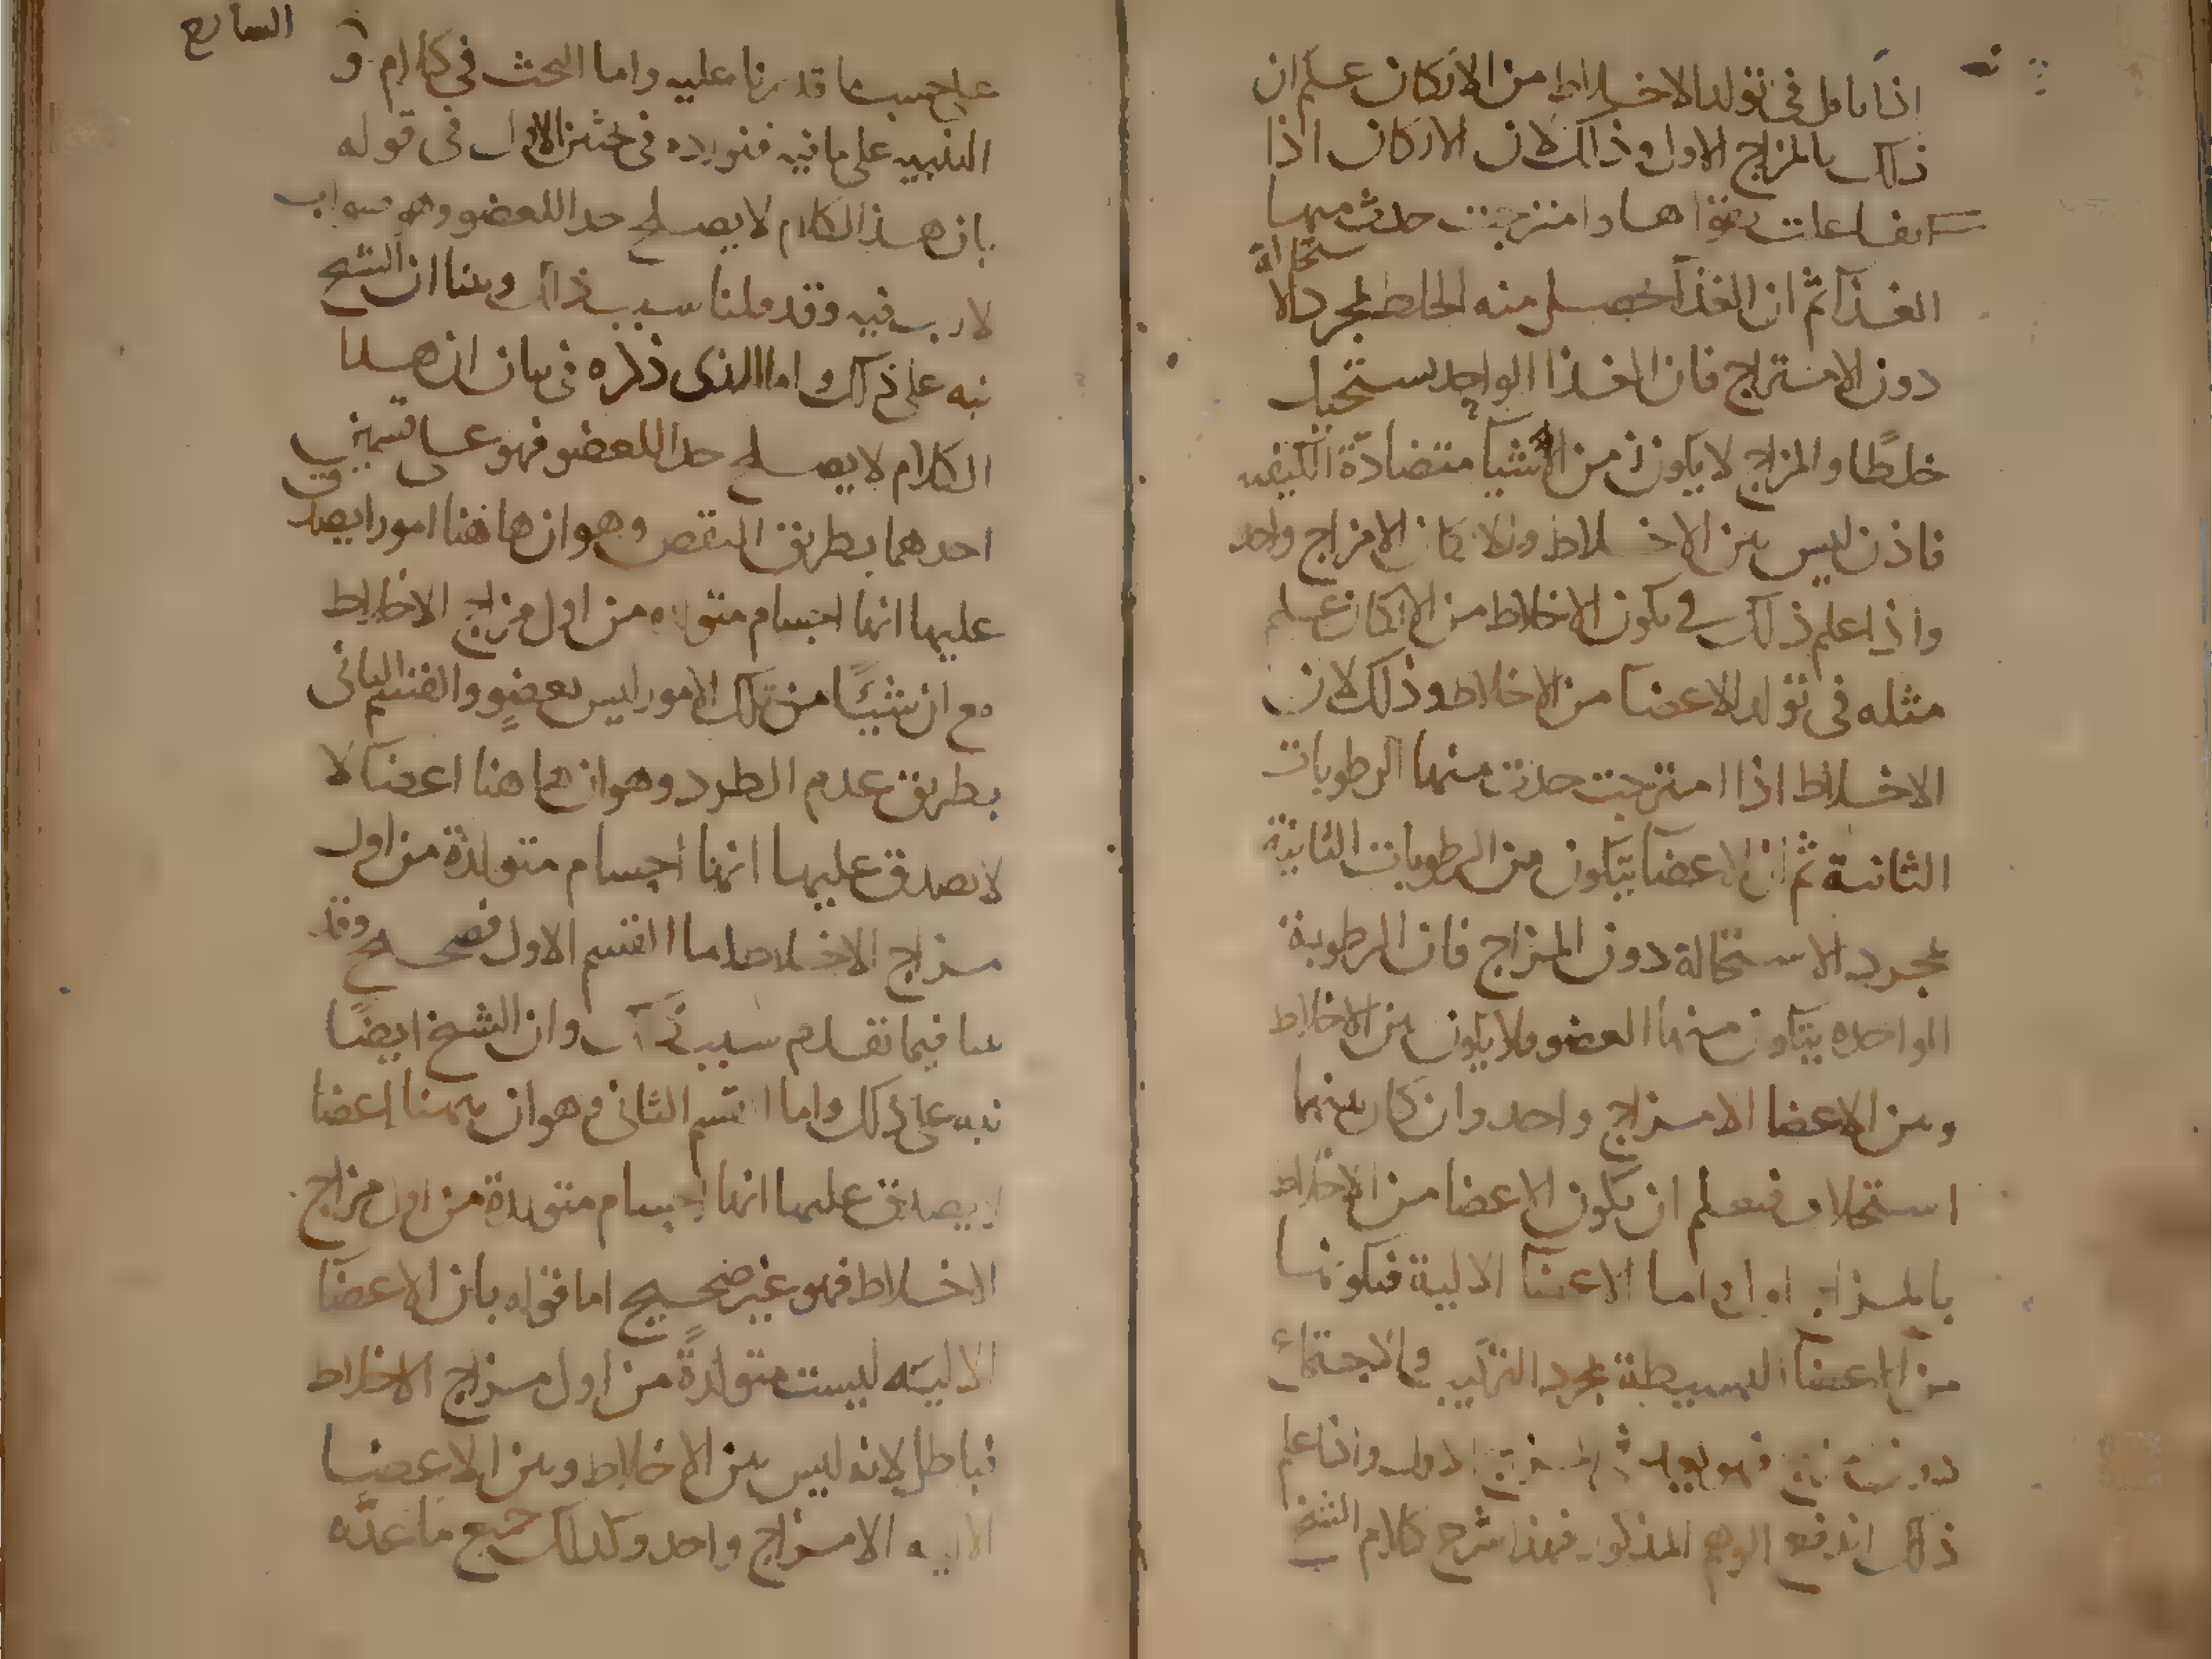 اذا تامل فى تولد الاخلاط من الاركان علم ان
ذلك بالمزاج الاول وذلك لان الاركان اذا
تفاعلت بقواها وامتزجت حدث منها
الغذآ ثم ان الغذآ يحصل منه الخلط بمجرد الا
ستحالة
دون الامتزاج فان الغذا الواحد يستحيل
خلطًا والمزاج لا يكون من الاشيآ متضادة الكيفيه
فاذن ليس بين الاخلاط والاركان الا مزاج واحد
واذا علم ذلك فى تكون الاخلاط من الاركان علم
مثله فى تولد الاعضآ من الاخلاط وذلك لان
الاخلاط اذا امتزجت حدثت منها الرطوبات
الثانية ثم ان الاعضآ يتكون من الرطوبات الثانية
بمجرد الاستحالة دون المزاج فان الرطوبة
الواحده يتكون منها العضو فلا يكون بين الاخلاط
وبين الاعضا الا مزاج واحد وان كان بينهما
استحالات فتعلم ان تكون الاعضا من الاخلاط
بالمزاج الاول اما الاعضآ الالية فتكونها
من الاعضآ البسيطة بمجرد التركيب والاجتماع
دون فهو بعد المزاج الاول واذا علم
ذلك اندفع الوهم المذكور فهذا شرح كلام الشيخ
على حسب ما قدرنا عليه واما البحث فى كلام
التنبيه على ما فيه فنورده فى بحثين الاول فى قوله
بان هذا الكلام لا يصلح حدا للعضو وهو صواب
لا ريب فيه وقد قلنا سبب ذلك وبينا ان الشيخ
نبه على ذلك واما الذى ذكره فى بيان ان هذا
الكلام لا يصلح حدا للعضو فهو على قسمين
احدهما بطريق النقص وهو ان هاهنا امورا يصدق
عليها انها اجسام متولده من اول مزاج الاخلاط
مع ان شيئًا من تلك الامور ليس بعضوٍ والقسم الثانى
بطريق عدم الطرد وهو ان هاهنا اعضآ لا
لا يصدق عليها انها اجسام متولدة من اول
مزاج الاخلاط اما القسم الاول فصحيح وقد
بينا فيما تقدم سبب ذلك وان الشيخ ايضًا
نبه على ذلك واما القسم الثانى وهو ان ههنا اعضا
لا يصدق عليها انها اجسام متولدة من اول مزاج
الاخلاط فهو غير صحيح اما قوله بان الاعضآ
الاليَه ليست متولدةً من اول مزاج الاخلاط
فباطل لانه ليس بين الاخلاط وبين الاعضآ
الاليه الا مزاج واحد وكذلك جميع ما عدّه